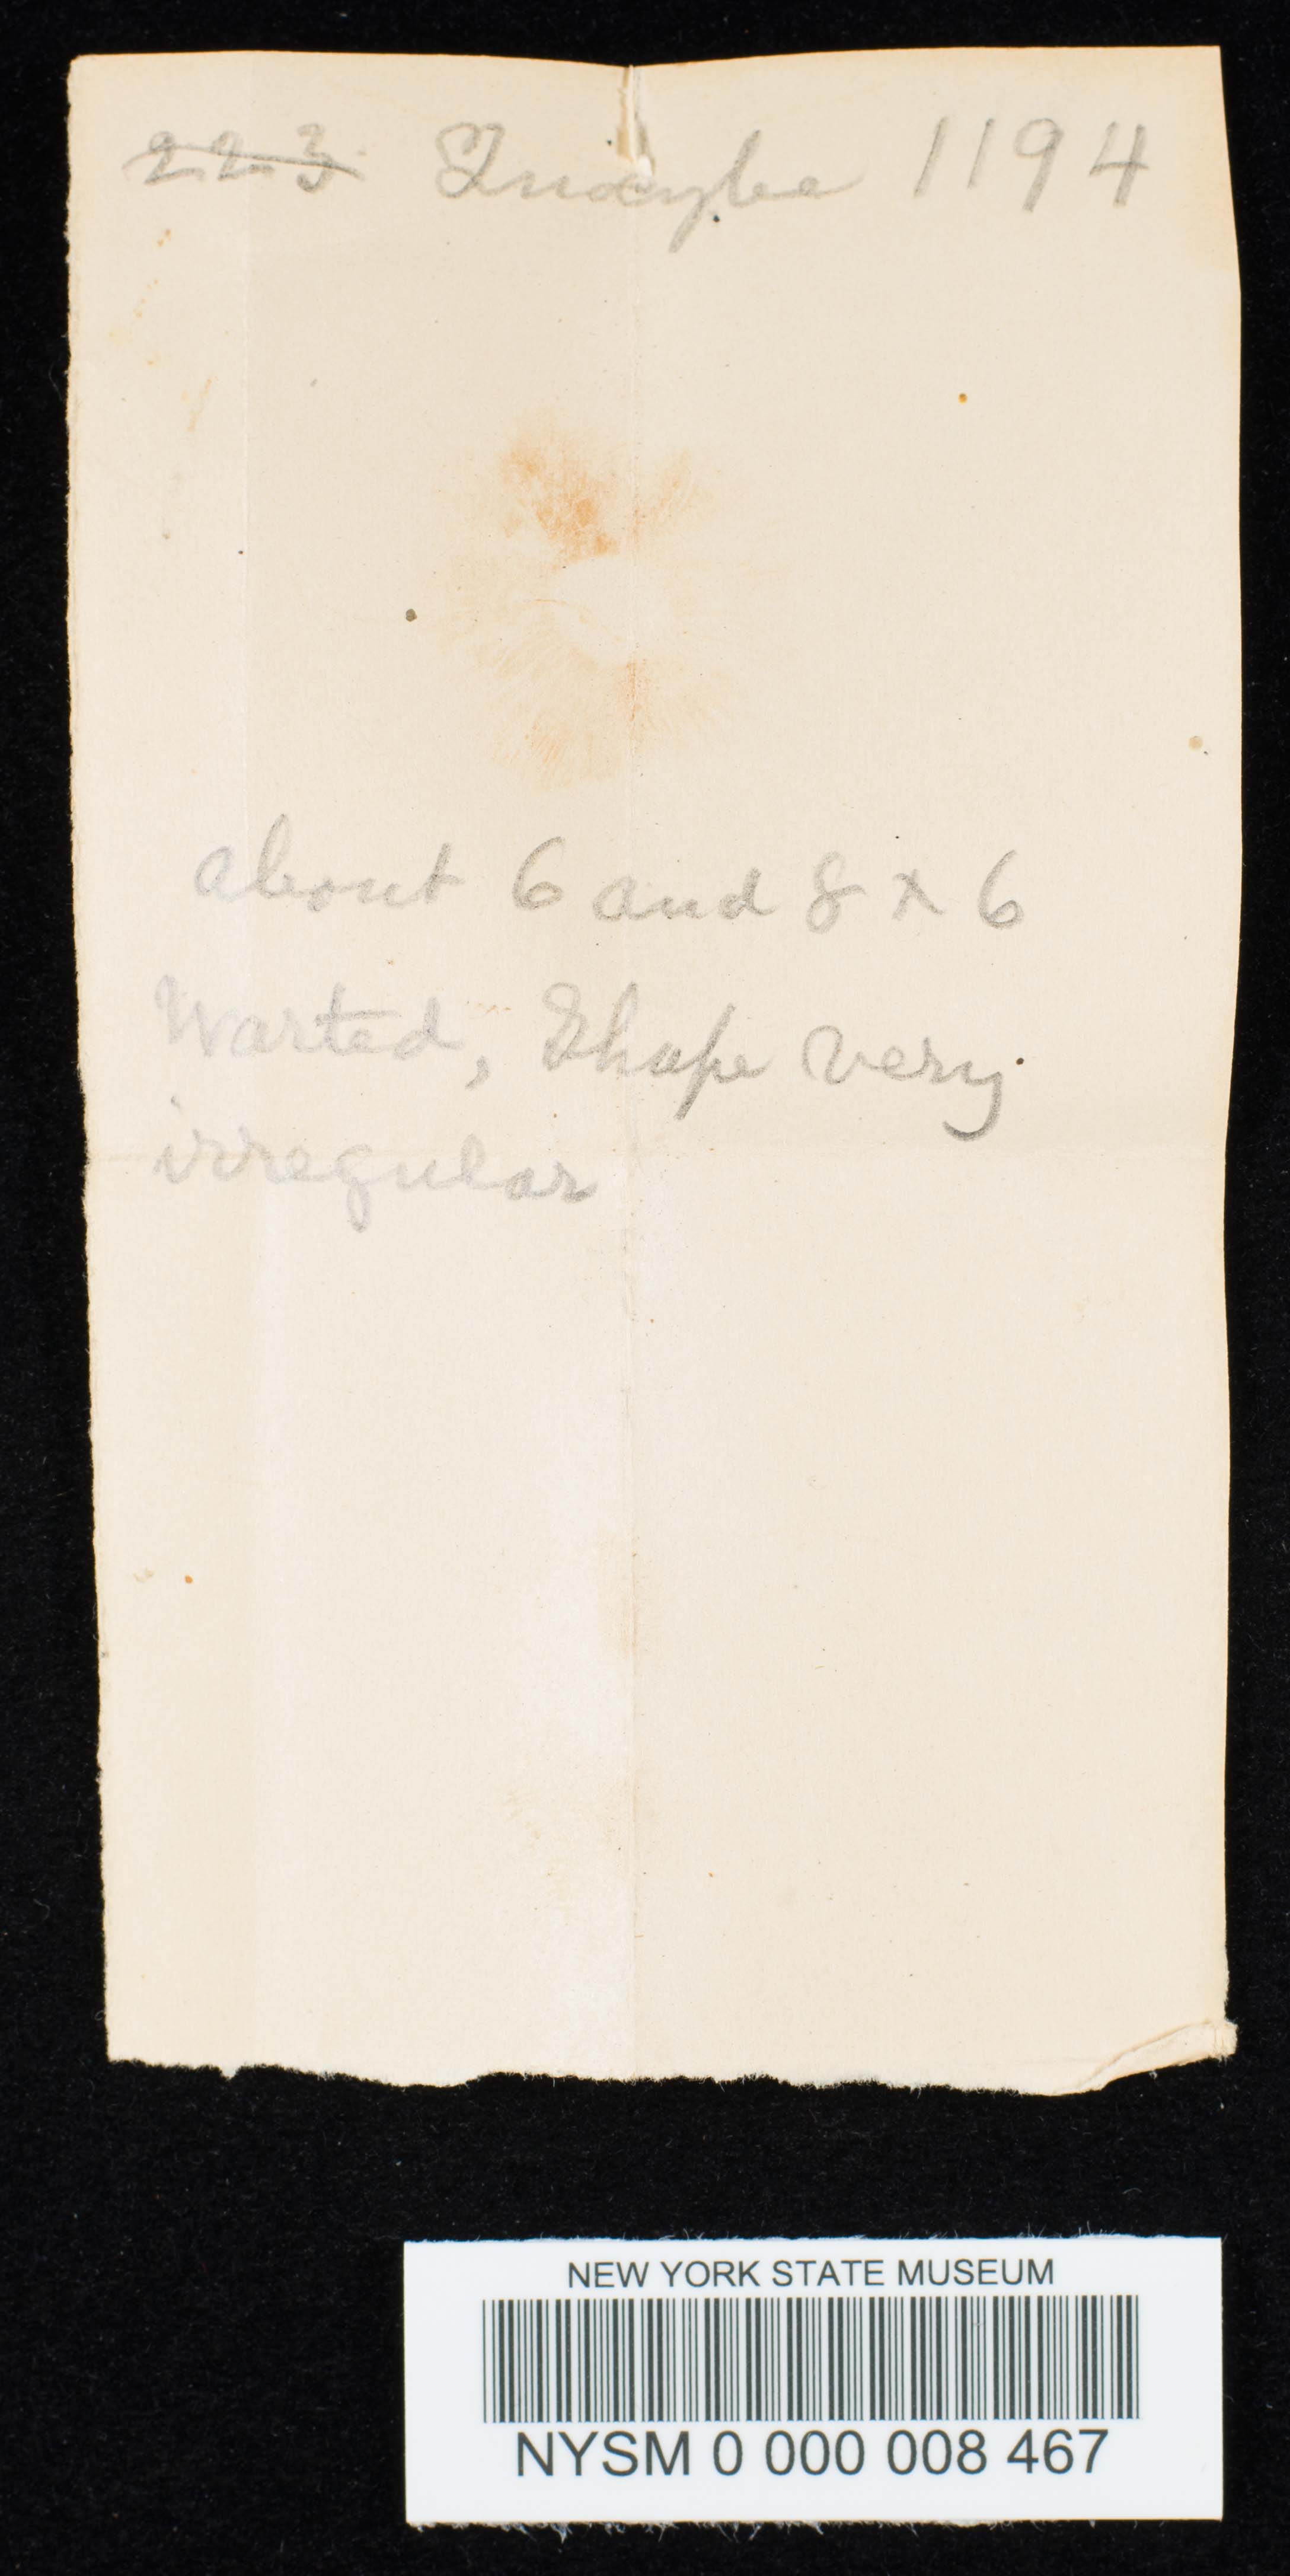 223 Inocybe 1194
about 6 and 8 x 6
Warted, Shape very
irregular
NEW YORK STATE MUSEUM
NYSM 0 000 008 467